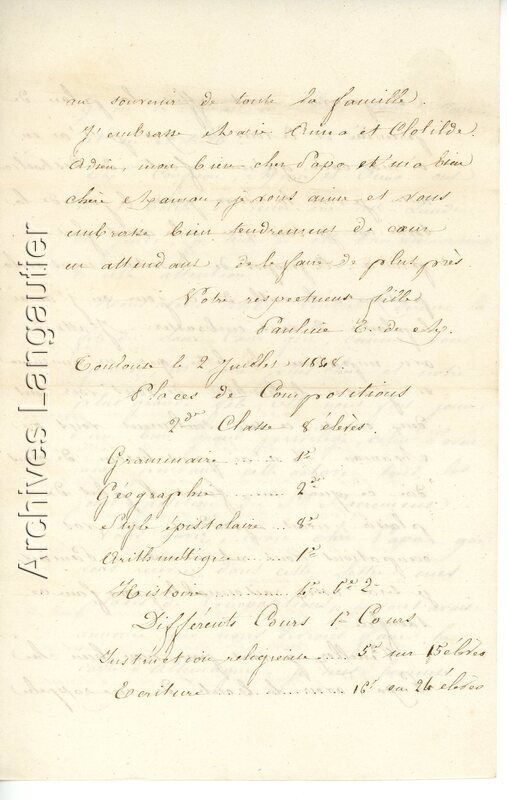 au souvenir de toute la famille.
J'embrasse Marie Anna et Clotilde.
Adieu, mon bien cher Papa et ma bien
chère Maman, je vous aime et vous
embrasse bien tendrement de cœur
en attendant de le faire de plus près
Votre respectueuse fille
Pauline E. de M.
Toulouse le 2 Juillet 1848.
Places de Compositions
2de Classe 8 élèves.
Grammaire ...... 1e
Géographie ...... 2e
Style épistolaire ... 8e
Arithmétique ...... 1e
Histoire
Différents Cours 1er Cours
Instruction religieuse .... 5e sur 15 élèves
Ecriture ........ 16e sur 24 élèves
Archives Langautier